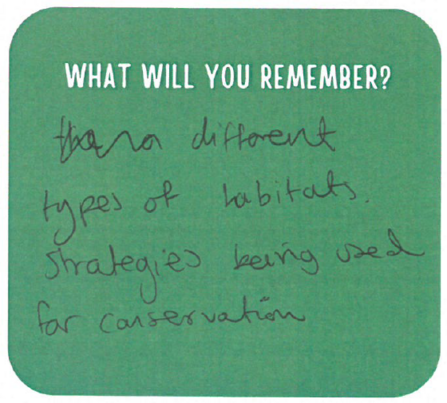 WHAT WILL YOU REMEMBER?
different
types of habitats.
Strategies being used
for conservation